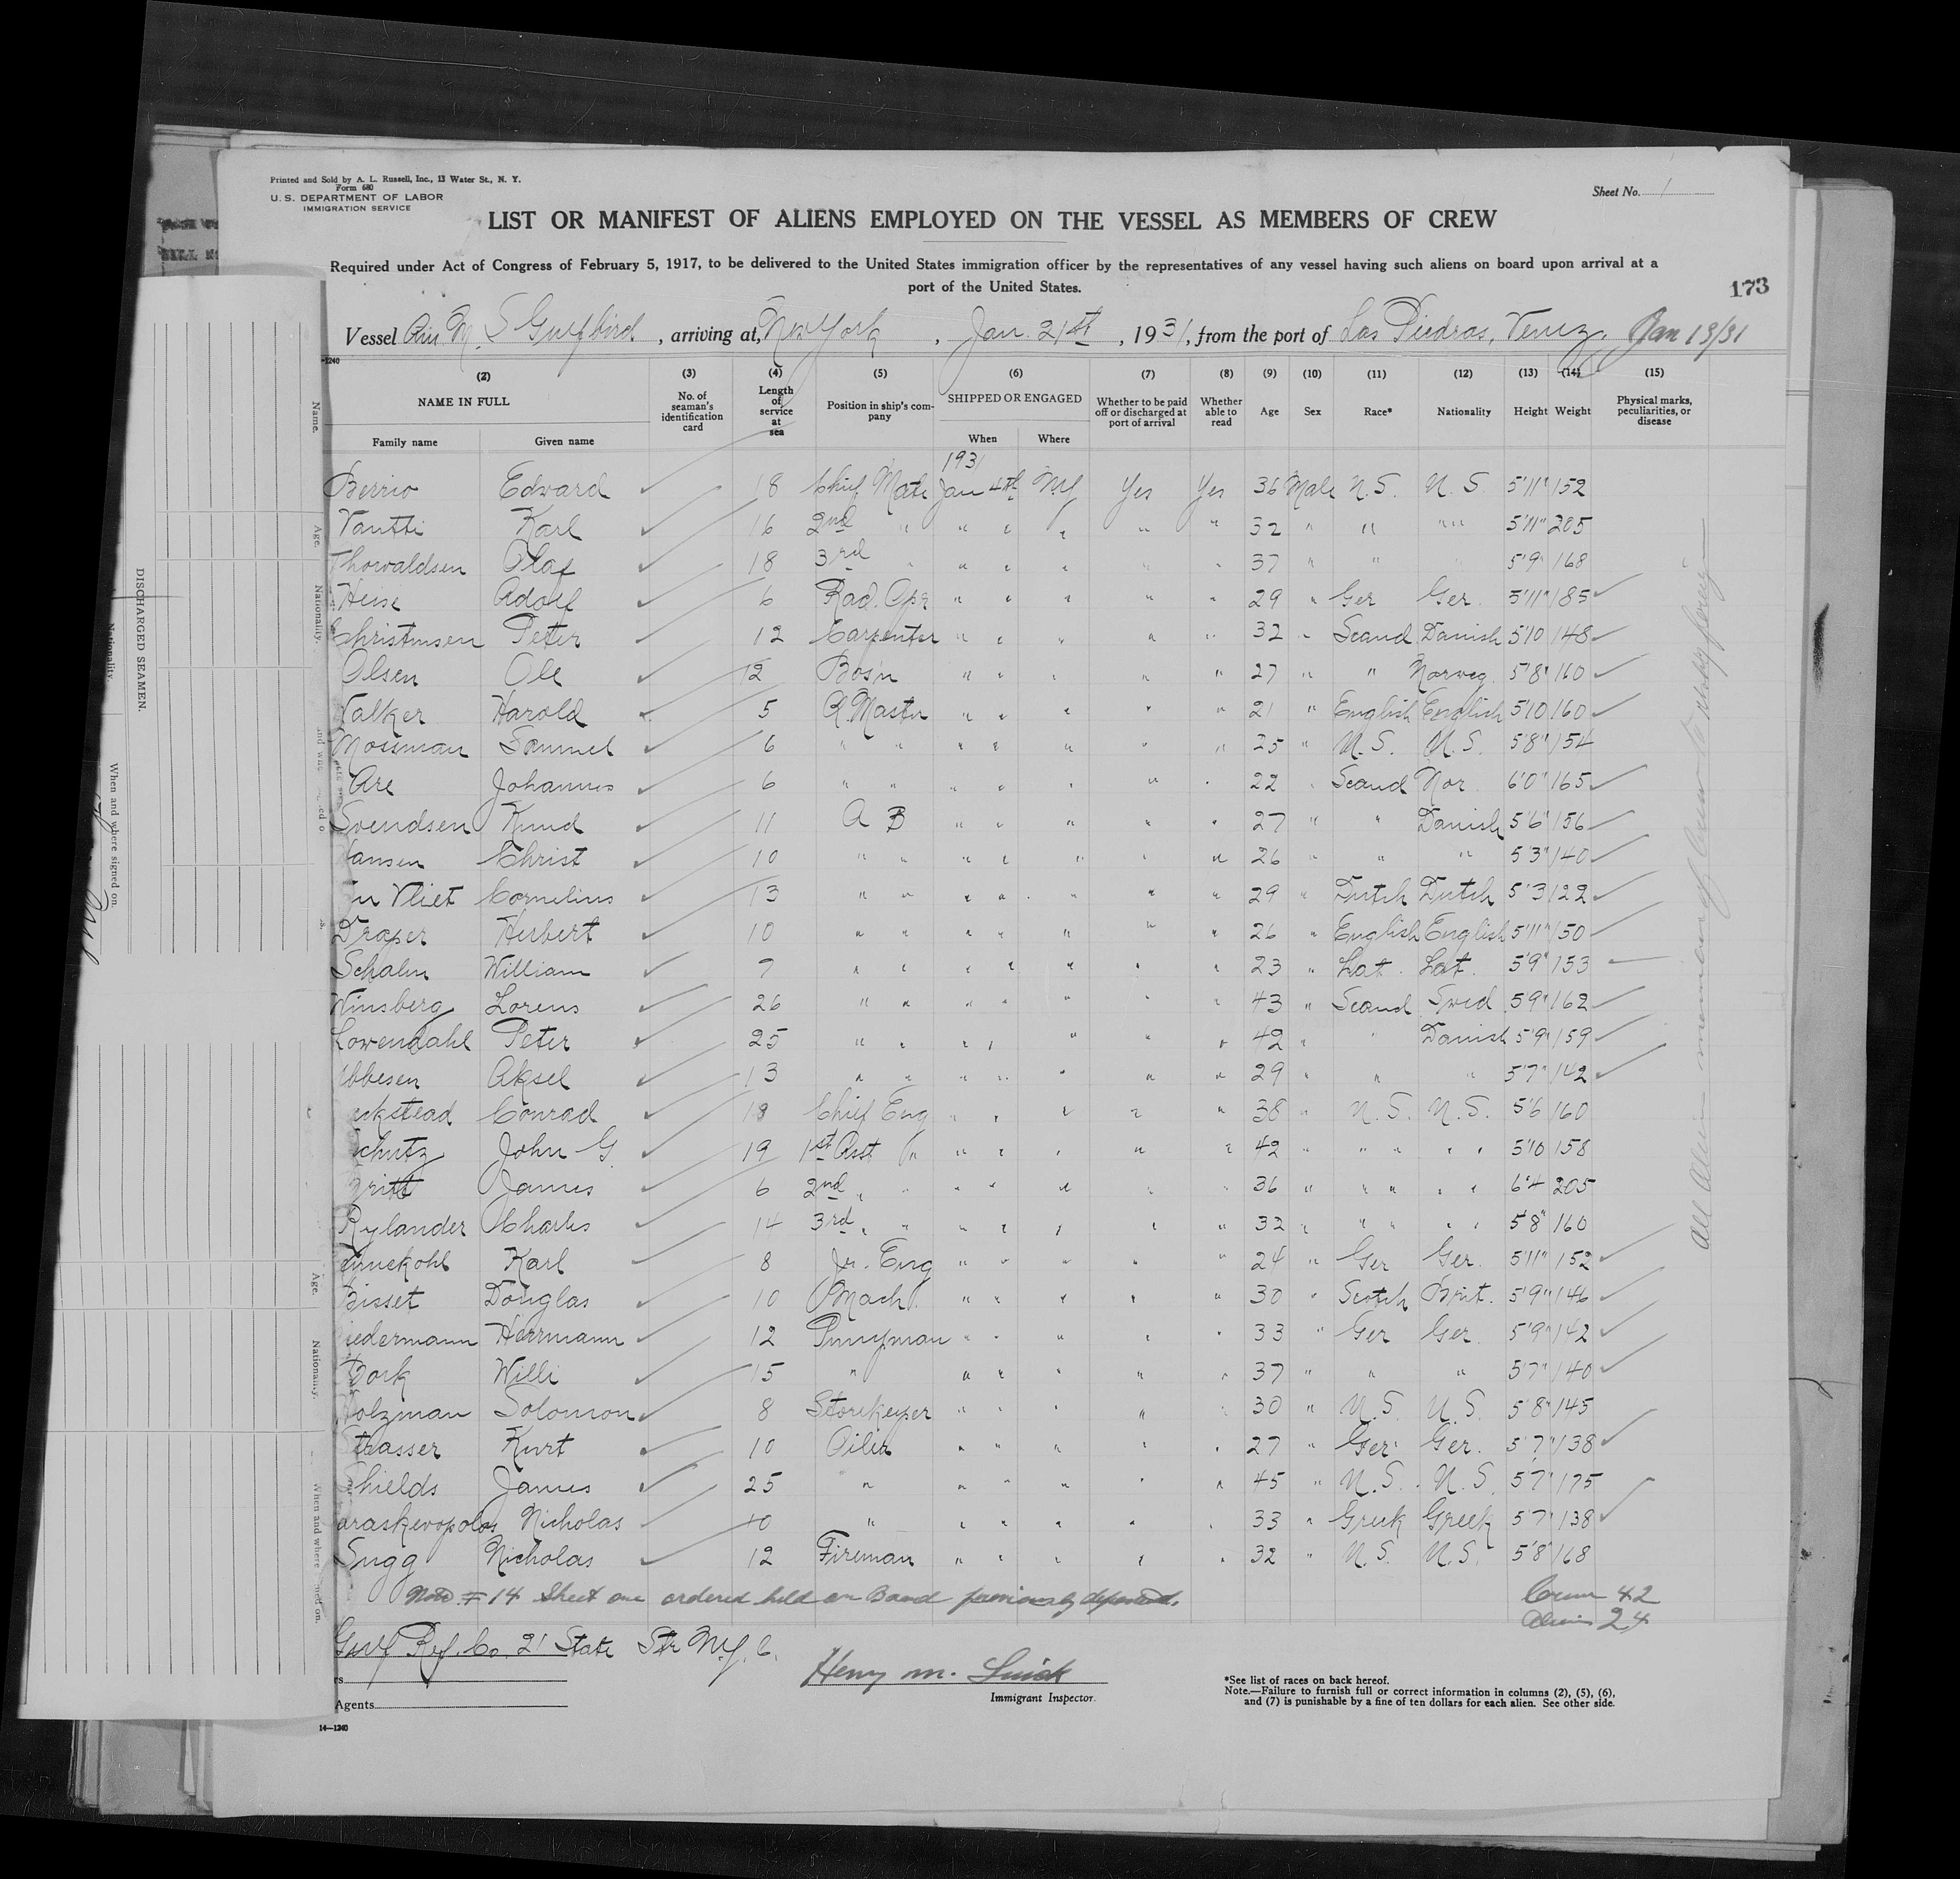 Printed and Sold by A. L. Russell, Inc., 13 Water St., N. Y.
Form 680
U. S. DEPARTMENT OF LABOR
IMMIGRATION SERVICE
Sheet No. 1
LIST OR MANIFEST OF ALIENS EMPLOYED ON THE VESSEL AS MEMBERS OF CREW
Required under Act of Congress of February 5, 1917, to be delivered to the United States immigration officer by the representatives of any vessel having such aliens on board upon arrival at a
port of the United States.
173
Vessel M. S Gulfbird, arriving at, New York, Jan. 21st, 1931, from the port of Las Piedras, Venez. Jan 13/31
-1240
(2) (3) (4) (5) (6) (7) (8) (9) (10) (11) (12) (13) (14) (15)
NAME IN FULL No. of seaman's identification card Length of service at sea Position in ship's company SHIPPED OR ENGAGED Whether to be paid off or discharged at port of arrival Whether able to read Age Sex Race* Nationality Height Weight Physical marks, peculiarities, or disease
Family name Given name When Where
1931
Berrio Edward 18 Chief Mate Jan 4th NY Yes Yes 36 Male U.S. U.S. 5'11" 152
Vantti Karl 16 2nd " " " " " " 32 " " " " 5'11" 205
Thorvaldsen Olaf 18 3rd " " " " " " 37 " " 5'9" 168
Heise Adolf 6 Rad. Opr " " " " " 29 " Ger Ger. 5'11" 185
Christensen Peter 12 Carpenter " " " " " 32 " Scand Danish 5'10 148
Olsen Ole 12 Bos'n " " " " " 27 " " Norweg. 5'8" 160
Walker Harold 5 Q. Master " " " " " 21 " English English 5'10 160
Mossman Samuel 6 " " " " " " " 25 " U.S. U.S. 5'8" 154
Are Johannes 6 " " " " " " " 22 " Scand Nor. 6'0" 165
Svendsen Knud 11 A B " " " " " 27 " " Danish 5'6" 156
Hansen Christ 10 " " " " " " " 26 " " " 5'3" 140
Vliet Cornelius 13 " " " " " " " 29 " Dutch Dutch 5'3 122
Draper Herbert 10 " " " " " " " 26 " English English 5'11" 150
Schalin William 7 " " " " " " " 23 " Lat. Lat. 5'9" 153
Winsberg Lorens 26 " " " " " " " 43 " Scand Swed. 5'9" 162
Lowendahl Peter 25 " " " " " " " 42 " " Danish 5'9" 159
bbesen Aksel 13 " " " " " " " 29 " " " 5'7" 142
ckstead Conrad 18 Chief Eng " " " " " 38 " U.S. U.S. 5'6 160
Schutz John G. 19 1st Asst " " " " " " 42 " " " " " 5'10 158
Britt James 6 2nd " " " " " " " 36 " " " " " 6'4 205
Rylander Charles 14 3rd " " " " " " " 32 " " " " " 5'8" 160
ennekohl Karl 8 Jr. Eng " " " " 24 " Ger Ger. 5'11" 152
Bisset Douglas 10 Mach. " " " " " 30 " Scotch Brit. 5'9" 146
iedermann Herrmann 12 Pumpman " " " " " 33 " Ger Ger. 5'9" 142
Bork Willi 15 " " " " " " 37 " " " 5'7" 140
Holzman Solomon 8 Storekeeper " " " " " 30 " U.S. U.S. 5'8" 145
Strasser Kurt 10 Oiler " " " " " 27 " Ger. Ger. 5'7" 138
Shields James 25 " " " " " " 45 " U.S. U.S. 5'7" 175
araskevopolos Nicholas 10 " " " " " " 33 " Greek Greek 5'7" 138
Sugg Nicholas 12 Fireman " " " " " 32 " U.S. U.S. 5'8" 168
Note # 14 Sheet one ordered held on Board previously deported.
Crew 42
Aliens 24
Gulf Ref. Co. 21 State Str N.Y.C.
Henry M.
Immigrant Inspector.
rs
Agents
*See list of races on back hereof.
Note.—Failure to furnish full or correct information in columns (2), (5), (6),
and (7) is punishable by a fine of ten dollars for each alien. See other side.
14—1240
DISCHARGED SEAMEN.
Name.
Age.
Nationality.
When and where signed on.
Nationality.
Age.
Nationality.
When and where